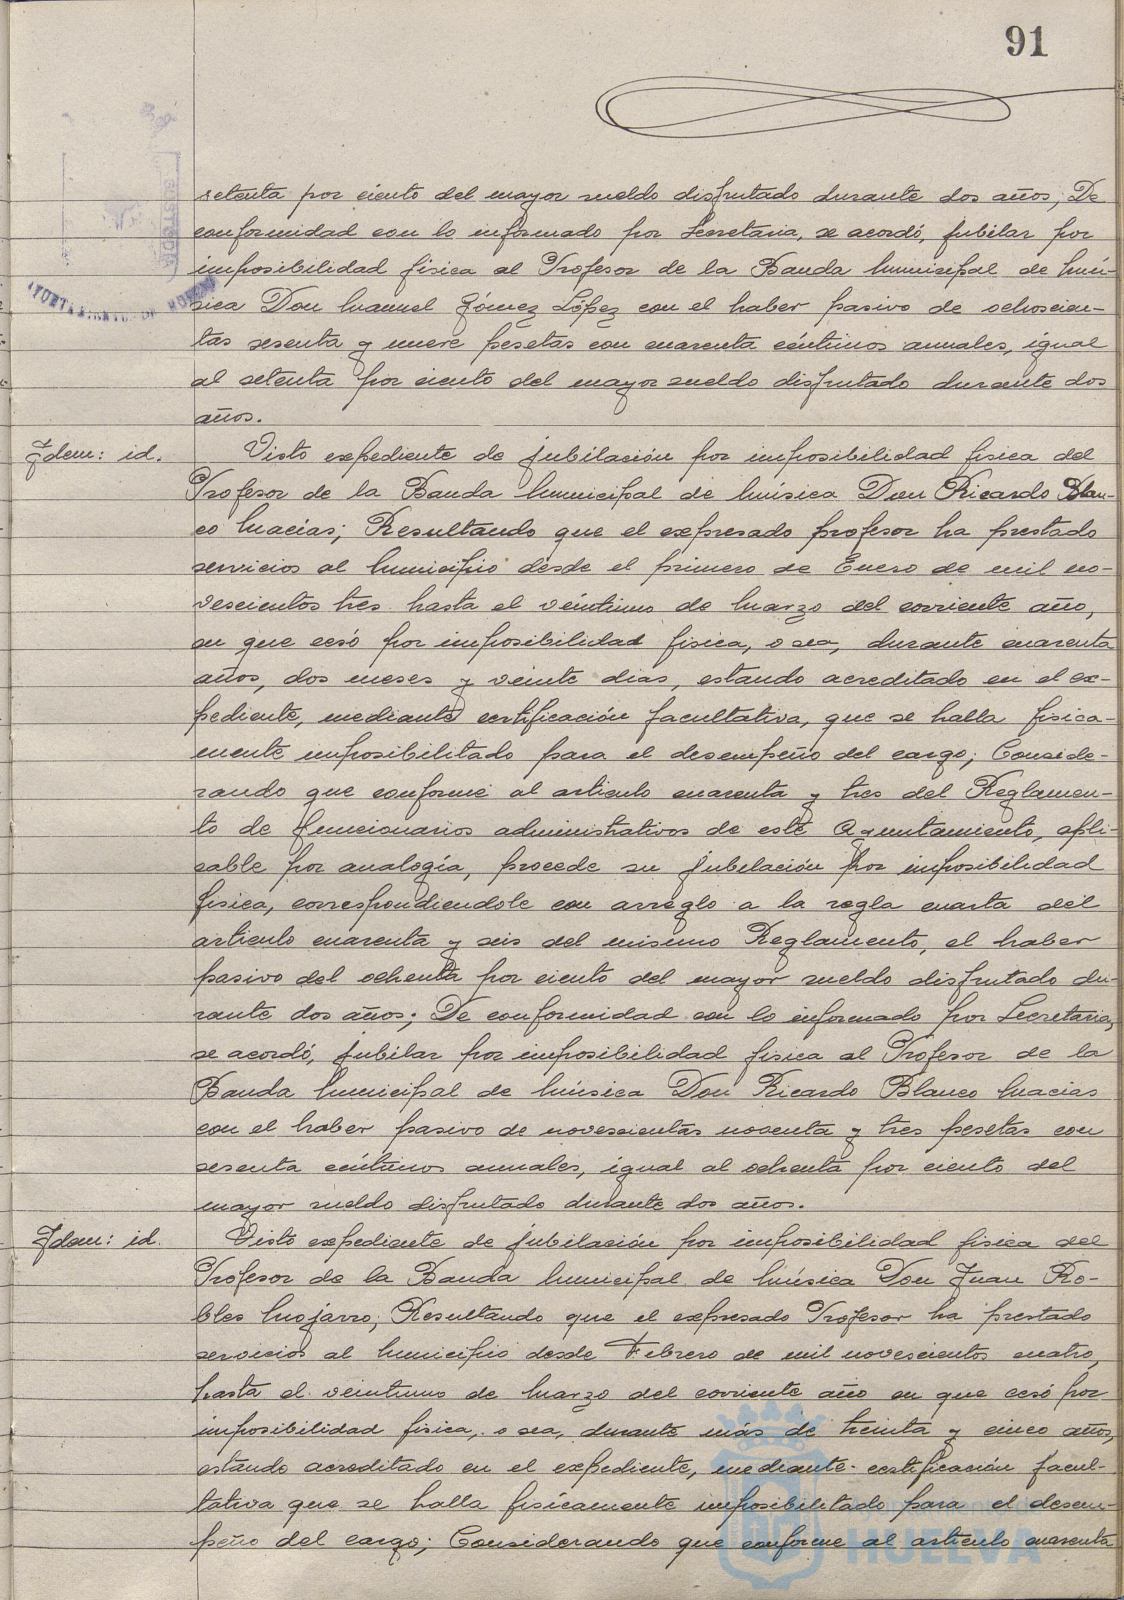 91
setenta por ciento del mayor sueldo disfrutado durante dos años; De
conformidad con lo informado por Secretaria, se acordó, jubilar por
imposibilidad fisica al Profesor de la Banda Municipal de Mú-
sica Don Manuel Gómez López con el haber pasivo de ochocien-
tas sesenta y nueve pesetas con cuarenta céntimos anuales, igual
al setenta por ciento del mayor sueldo disfrutado durante dos
años.
Idem: id.
Visto expediente de jubilación por imposibilidad fisica del
Profesor de la Banda Municipal de Música Don Ricardo Blan-
co Macías; Resultando que el expresado profesor ha prestado
servicios al Municipio desde el primero de Enero de mil no-
vescientos tres hasta el veintiuno de Marzo del corriente año,
en que cesó por imposibilidad fisica, o sea, durante cuarenta
años, dos meses y veinte dias, estando acreditado en el ex-
pediente, mediante certificación facultativa, que se halla fisica-
mente imposibilitado para el desempeño del cargo; Conside-
rando que conforme al articulo cuarenta y tres del Reglamen-
to de funcionarios administrativos de este Ayuntamiento, apli-
cable por analogía, procede su jubilación por imposibilidad
fisica, correspondiendole con arreglo a la regla cuarta del
articulo cuarenta y seis del mismo Reglamento, el haber
pasivo del ochenta por ciento del mayor sueldo disfrutado du-
rante dos años; De conformidad con lo informado por Secretaria,
se acordó, jubilar por imposibilidad fisica al Profesor de la
Banda Municipal de Música Don Ricardo Blanco Macias
con el haber pasivo de novescientas noventa y tres pesetas con
sesenta céntimos anuales, igual al ochenta por ciento del
mayor sueldo disfrutado durante dos años.
Idem: id.
Visto expediente de jubilación por imposibilidad fisica del
Profesor de la Banda Municipal de Música Don Juan Ro-
bles Mojarro; Resultando que el expresado Profesor ha prestado
servicios al Municipio desde Febrero de mil novescientos cuatro,
hasta el veintiuno de Marzo del corriente año en que cesó por
imposibilidad fisica, o sea, durante más de treinta y cinco años,
estando acreditado en el expediente, mediante certificación facul-
tativa que se halla fisícamente imposibilitado para el desem-
peño del cargo; Considerando que conforme al articulo cuarenta
Ayuntamiento de
HUELVA